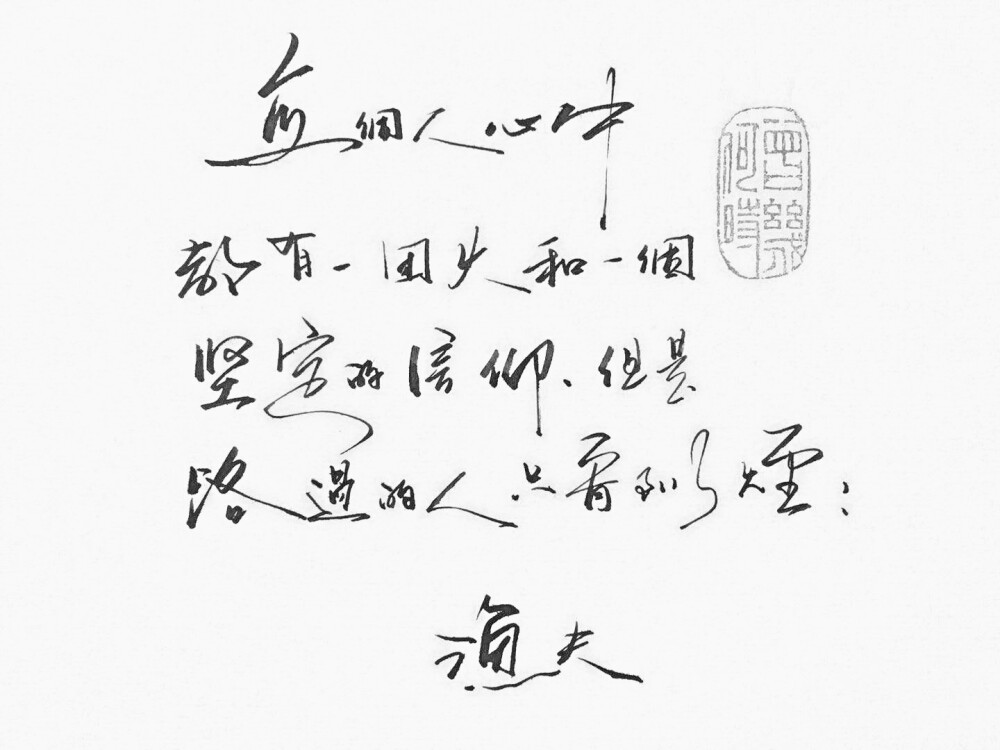 每個人心中
都有一团火和一個
坚定的信仰、但是
路過的人只看到了煙；
漁夫